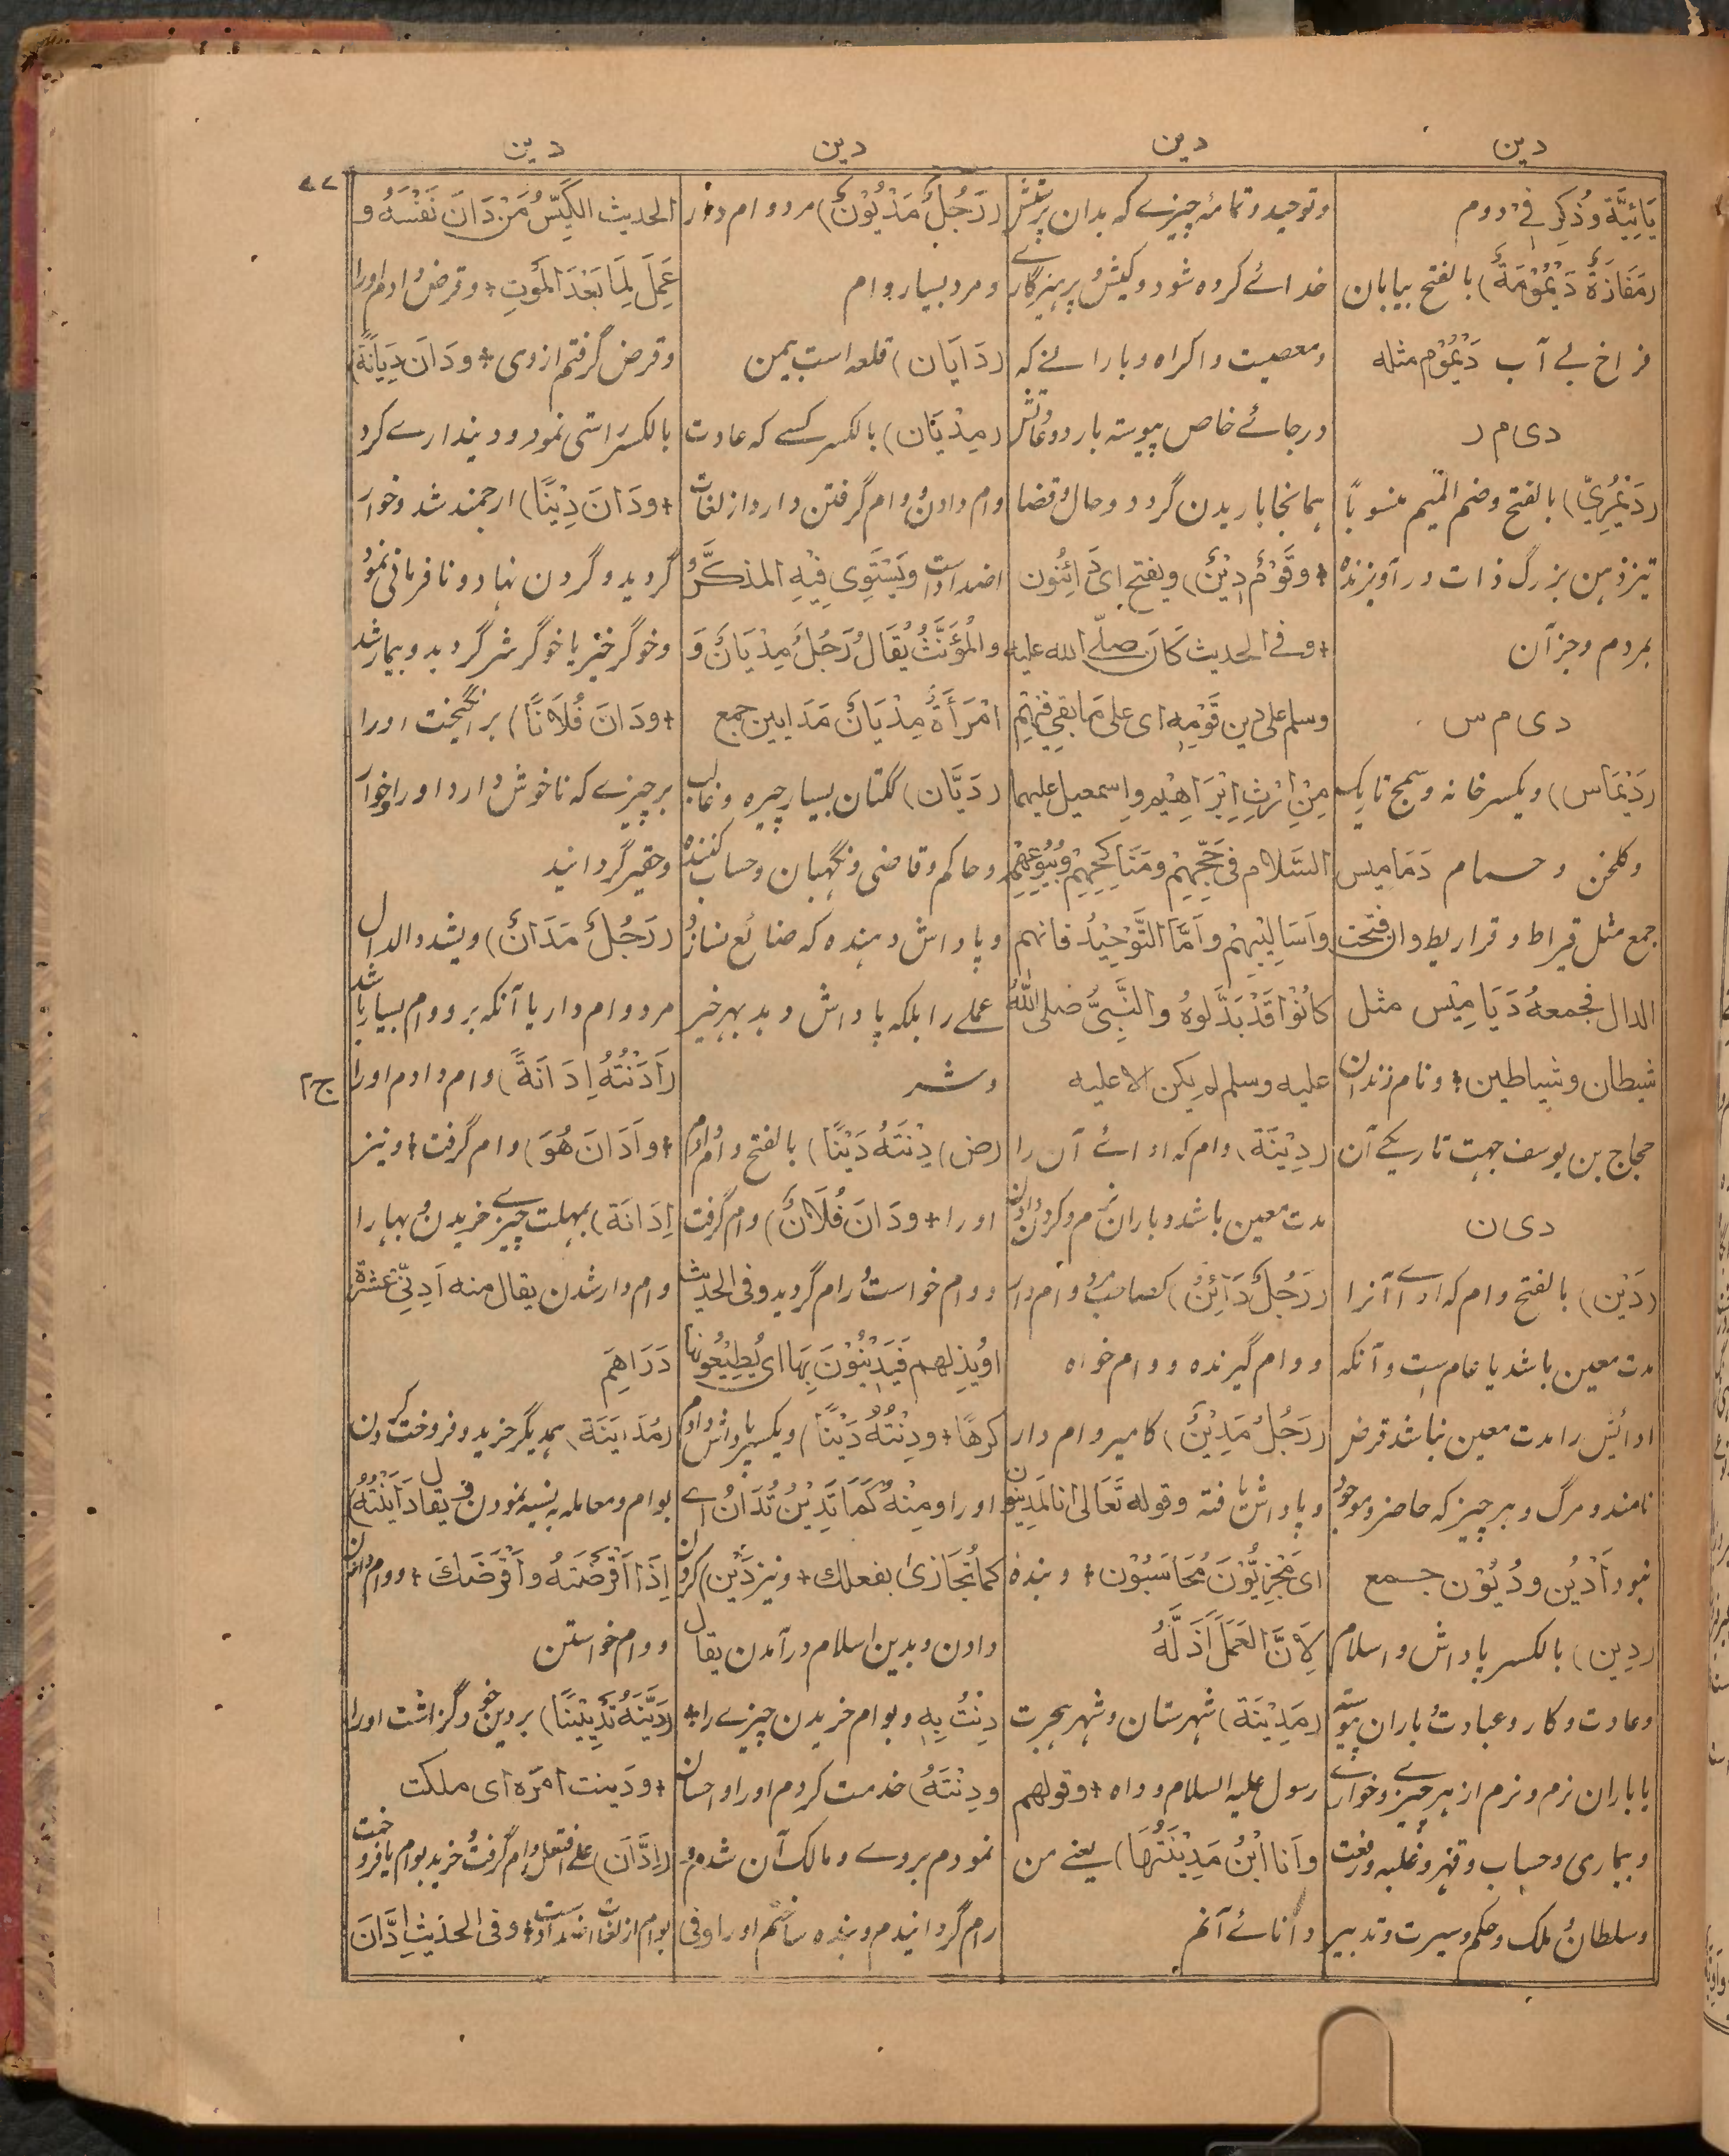 دین
دین
دین
دین
۷۷
یَائِیَّة وذُکِرَ فی دوم
(مَفَازَةٌ دَیْمُوْمَةٌ) بالفتح بیابان
فراخ بے آب دَیْمُوْم مثله
دی م ر
(دَیْمُرِیّ) بالفتح وضم المیم منسوباً
تیزذهن بزرگ ذات درآویزنده
بمردم وجزآن
دی م س
(دَیْمَاس) ویکسر خانه وسمج تاریک
وگلخن وحمام دَمَامیس
جمع مثل قیراط وقراریط وان فتحت
الدال فجمعهُ دَیَامِیْس مثل
شیطان وشیاطین + ونام زندان
حجاج بن یوسف جهت تاریکے آن
دی ن
(دَیْن) بالفتح وام که اداے آنرا
مدت معین باشد یا عام ست وآنکه
ادائش را مدت معین نباشد قرض
نامند ومرگ وهر چیز که حاضر وموجود
نبود اَدْیُن ودُیُوْن جمع
(دِین) بالکسر پاداش واسلام
وعادت وکار وعبادت وباران پیوسته
یا باران نرم ونرم از هر چیزے وخواری
وبیماری وحساب وقهر وغلبه ورفعت
وسلطان وملک وحکم وسیرت وتدبیر
وتوحید وتمامه چیزے که بدان پرستش
خدائے کرده شود وکیش وپرهیزگاری
ومعصیت واکراه وبارانے که
درجائے خاص پیوسته بارد وعادتش
همانجا باریدن گردد وحال وقضا
+ وقَوْمٌ دِیْنٌ) وبفتح ای دَائِنُون
+ وفے الحدیث کَانَ صلّے الله علیه
وسلم علی دین قَوْمِه ای علی مَا بقی فیْهِم
مِنْ اِرْثِ اِبْرَاهِیْم واِسمعیل علیهما
السَّلام فی حَجِّهِمْ ومَنَاکِحِهِمْ وبُیُوْعِهِمْ
واَسَالِیْبِهِمْ واَمَّا التَّوْحِیْدُ فانهم
کانُوْا قَدْ بَدَّلوْهُ والنَّبِیُّ صلی اللهُ
علیه وسلم لم یکن الا علیه
(دِیْنَة) وام که ادائے آن را
مدت معین باشد وباران نرم وکردن
(رَجُلٌ دَائِنٌ) کصاحب مرد وام دار
ووام گیرنده ووام خواه
(رَجُلٌ مَدِیْنٌ) کامیر وام دار
وپاداش یافته وقوله تَعَالیٰ اِنا لمَدِینون
ای مَجْزِیُّوْنَ مُحَاسَبُوْن + وبنده
لِاَنَّ العَمَلَ اَذَلَّهُ
(مَدِیْنَة) شهرستان وشهر هجرت
رسول علیه السلام وداه + وقولهم
واَنَا ابْنُ مَدِیْنَتِهَا) یعنے من
دانائے آنم
(رَجُلٌ مَدْیُوْنٌ) مرد وام دار
ومرد بسیار وام
(دَایَان) قلعه است بیمن
(مِدْیَان) بالکسر کسے که عادت
وام دادن ووام گرفتن دارد از لغات
اضداد است ویَسْتَوِی فِیْهِ المذکَّرُ
والمُؤَنَّثُ یُقَالُ رَجُلٌ مِدْیَانٌ وَ
امْرَأَةٌ مِدْیَانٌ مَدَایین جمع
(دَیَّان) کلتان بسیار چیره وغالب
وحاکم وقاضی ونگهبان وحساب کننده
وپاداش دهنده که ضائع نسازد
عملے را بلکه پاداش دهد بهر خیر
وشر
(ض) دِنْتَهُ دَیْنًا) بالفتح وام دادم
او را + ودَانَ فُلَانٌ) وام گرفت
ووام خواست ورام گردید وفی الحدیث
کرهًا + ودِنْتُهُ دَیْنًا) ویکسر پاداش دادم
او را ومِنْهُ کَمَا تَدِیْنُ تُدَانُ اے
کما تُجَازیٰ بفعلك + ونیز دَیْن) کردن
دادن وبدین اسلام درآمدن یقال
دِنْتُ بِهٖ وبوام خریدن چیزے را +
ودِنْتَهُ) خدمت کردم او را واحسان
نمودم بروے ومالک آن شدم و
رام گردانیدم وبنده ساختم او را وفی
الحدیث الکَیِّسُ مَنْ دَانَ نَفْسَهُ و
عَمِلَ لِمَا بَعْدَ المَوتِ + وقرض دادم او را
وقرض گرفتم از وی + ودَانَ دِیَانَةً)
بالکسر راستی نمود ودینداری کرد
+ ودَانَ دِیْنًا) ارجمند شد وخوار
گردید وگردن نهاد ونافرمانی نمود
وخوگر خیر یا خوگر شر گردید وبیمار شد
+ ودَانَ فُلَانًا) برانگیخت او را
بر چیزے که ناخوش دارد او را وخوار
وحقیر گردانید
(رَجُلٌ مَدَانٌ) ویشدد الدال
مرد وام دار یا آنکه برو وام بسیار باشد
(اَدَنْتُهُ اِدَانَةً) وام دادم او را
ج۲
+ واَدَانَ هُوَ) وام گرفت + ونیز
اِدَانَة) بمهلت چیزے خریدن وبها را
وام دار شدن یقال منه اَدِنِّی عشرة
دَرَاهِمَ
(مُدَایَنَة) بهمدیگر خرید وفروخت کردن
بوام ومعامله به نسیه نمودن یقال دَایَنْتُهُ
اِذَا اَقْرَضْتَهُ واَقْرَضَكَ +
ووام خواستن
(دَیَّنَهُ تَدْیِیْنًا) بر دین خود گزاشت او را
+ ودَینت امرَه ای ملکت
(اِدَّانَ) علی افتعل وام گرفت وخرید بوام یا فروخت
بوام از لغات اضداد است + وفی الحدیث اِدَّانَ